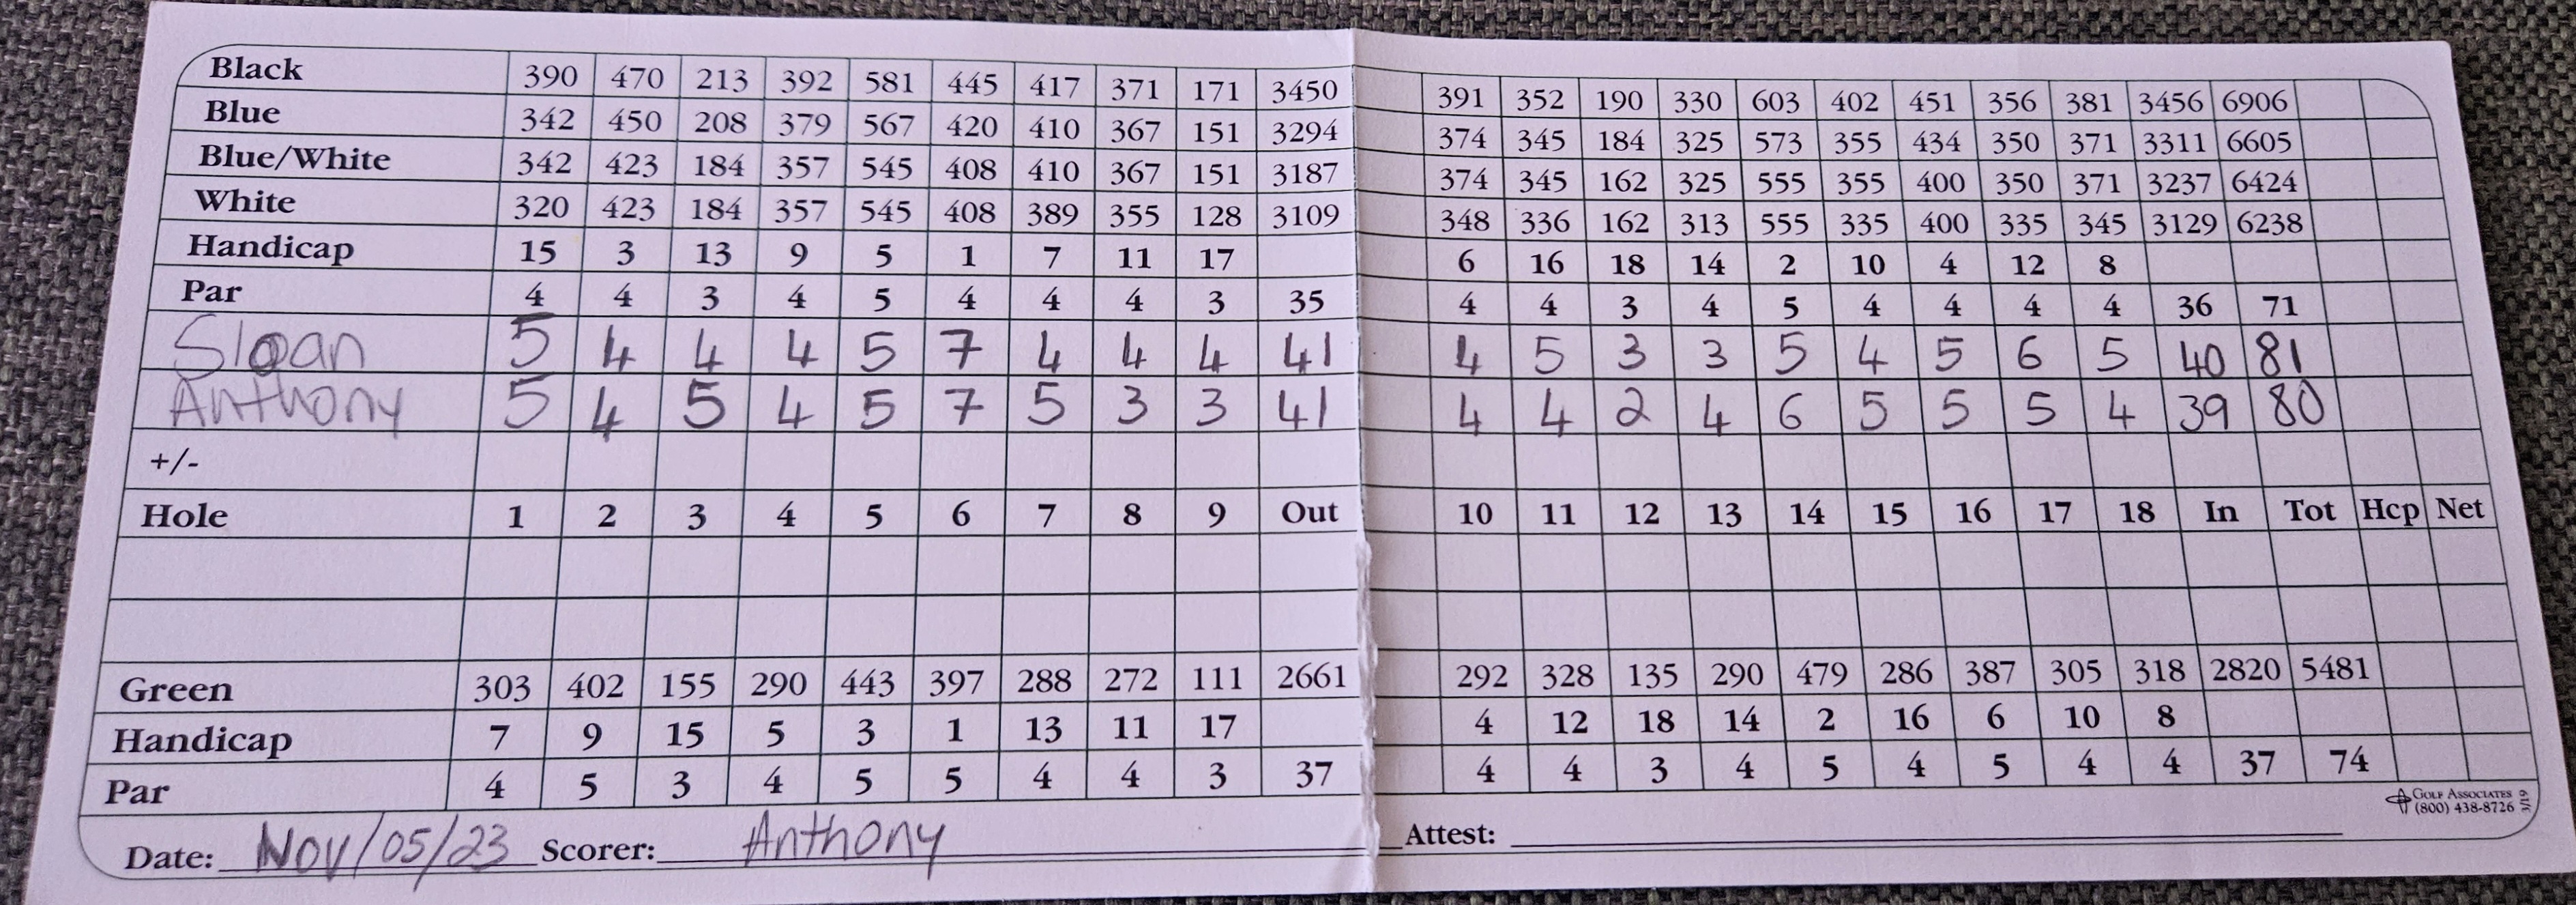 Black 390 470 213 392 581 445 417 371 171 3450 391 352 190 330 603 402 451 356 381 3456 6906
Blue 342 450 208 379 567 420 410 367 151 3294 374 345 184 325 573 355 434 350 371 3311 6605
Blue/White 342 423 184 357 545 408 410 367 151 3187 374 345 162 325 555 355 400 350 371 3237 6424
White 320 423 184 357 545 408 389 355 128 3109 348 336 162 313 555 335 400 335 345 3129 6238
Handicap 15 3 13 9 5 1 7 11 17 6 16 18 14 2 10 4 12 8
Par 4 4 3 4 5 4 4 4 3 35 4 4 3 4 5 4 4 4 4 36 71
Sloan 5 4 4 4 5 7 4 4 4 41 4 5 3 3 5 4 5 6 5 40 81
Anthony 5 4 5 4 5 7 5 3 3 41 4 4 2 4 6 5 5 5 4 39 80
+/-
Hole 1 2 3 4 5 6 7 8 9 Out 10 11 12 13 14 15 16 17 18 In Tot Hcp Net
Green 303 402 155 290 443 397 288 272 111 2661 292 328 135 290 479 286 387 305 318 2820 5481
Handicap 7 9 15 5 3 1 13 11 17 4 12 18 14 2 16 6 10 8
Par 4 5 3 4 5 5 4 4 3 37 4 4 3 4 5 4 5 4 4 37 74
Golf Associates
(800) 438-8726
Date: Nov/05/23 Scorer: Anthony Attest: